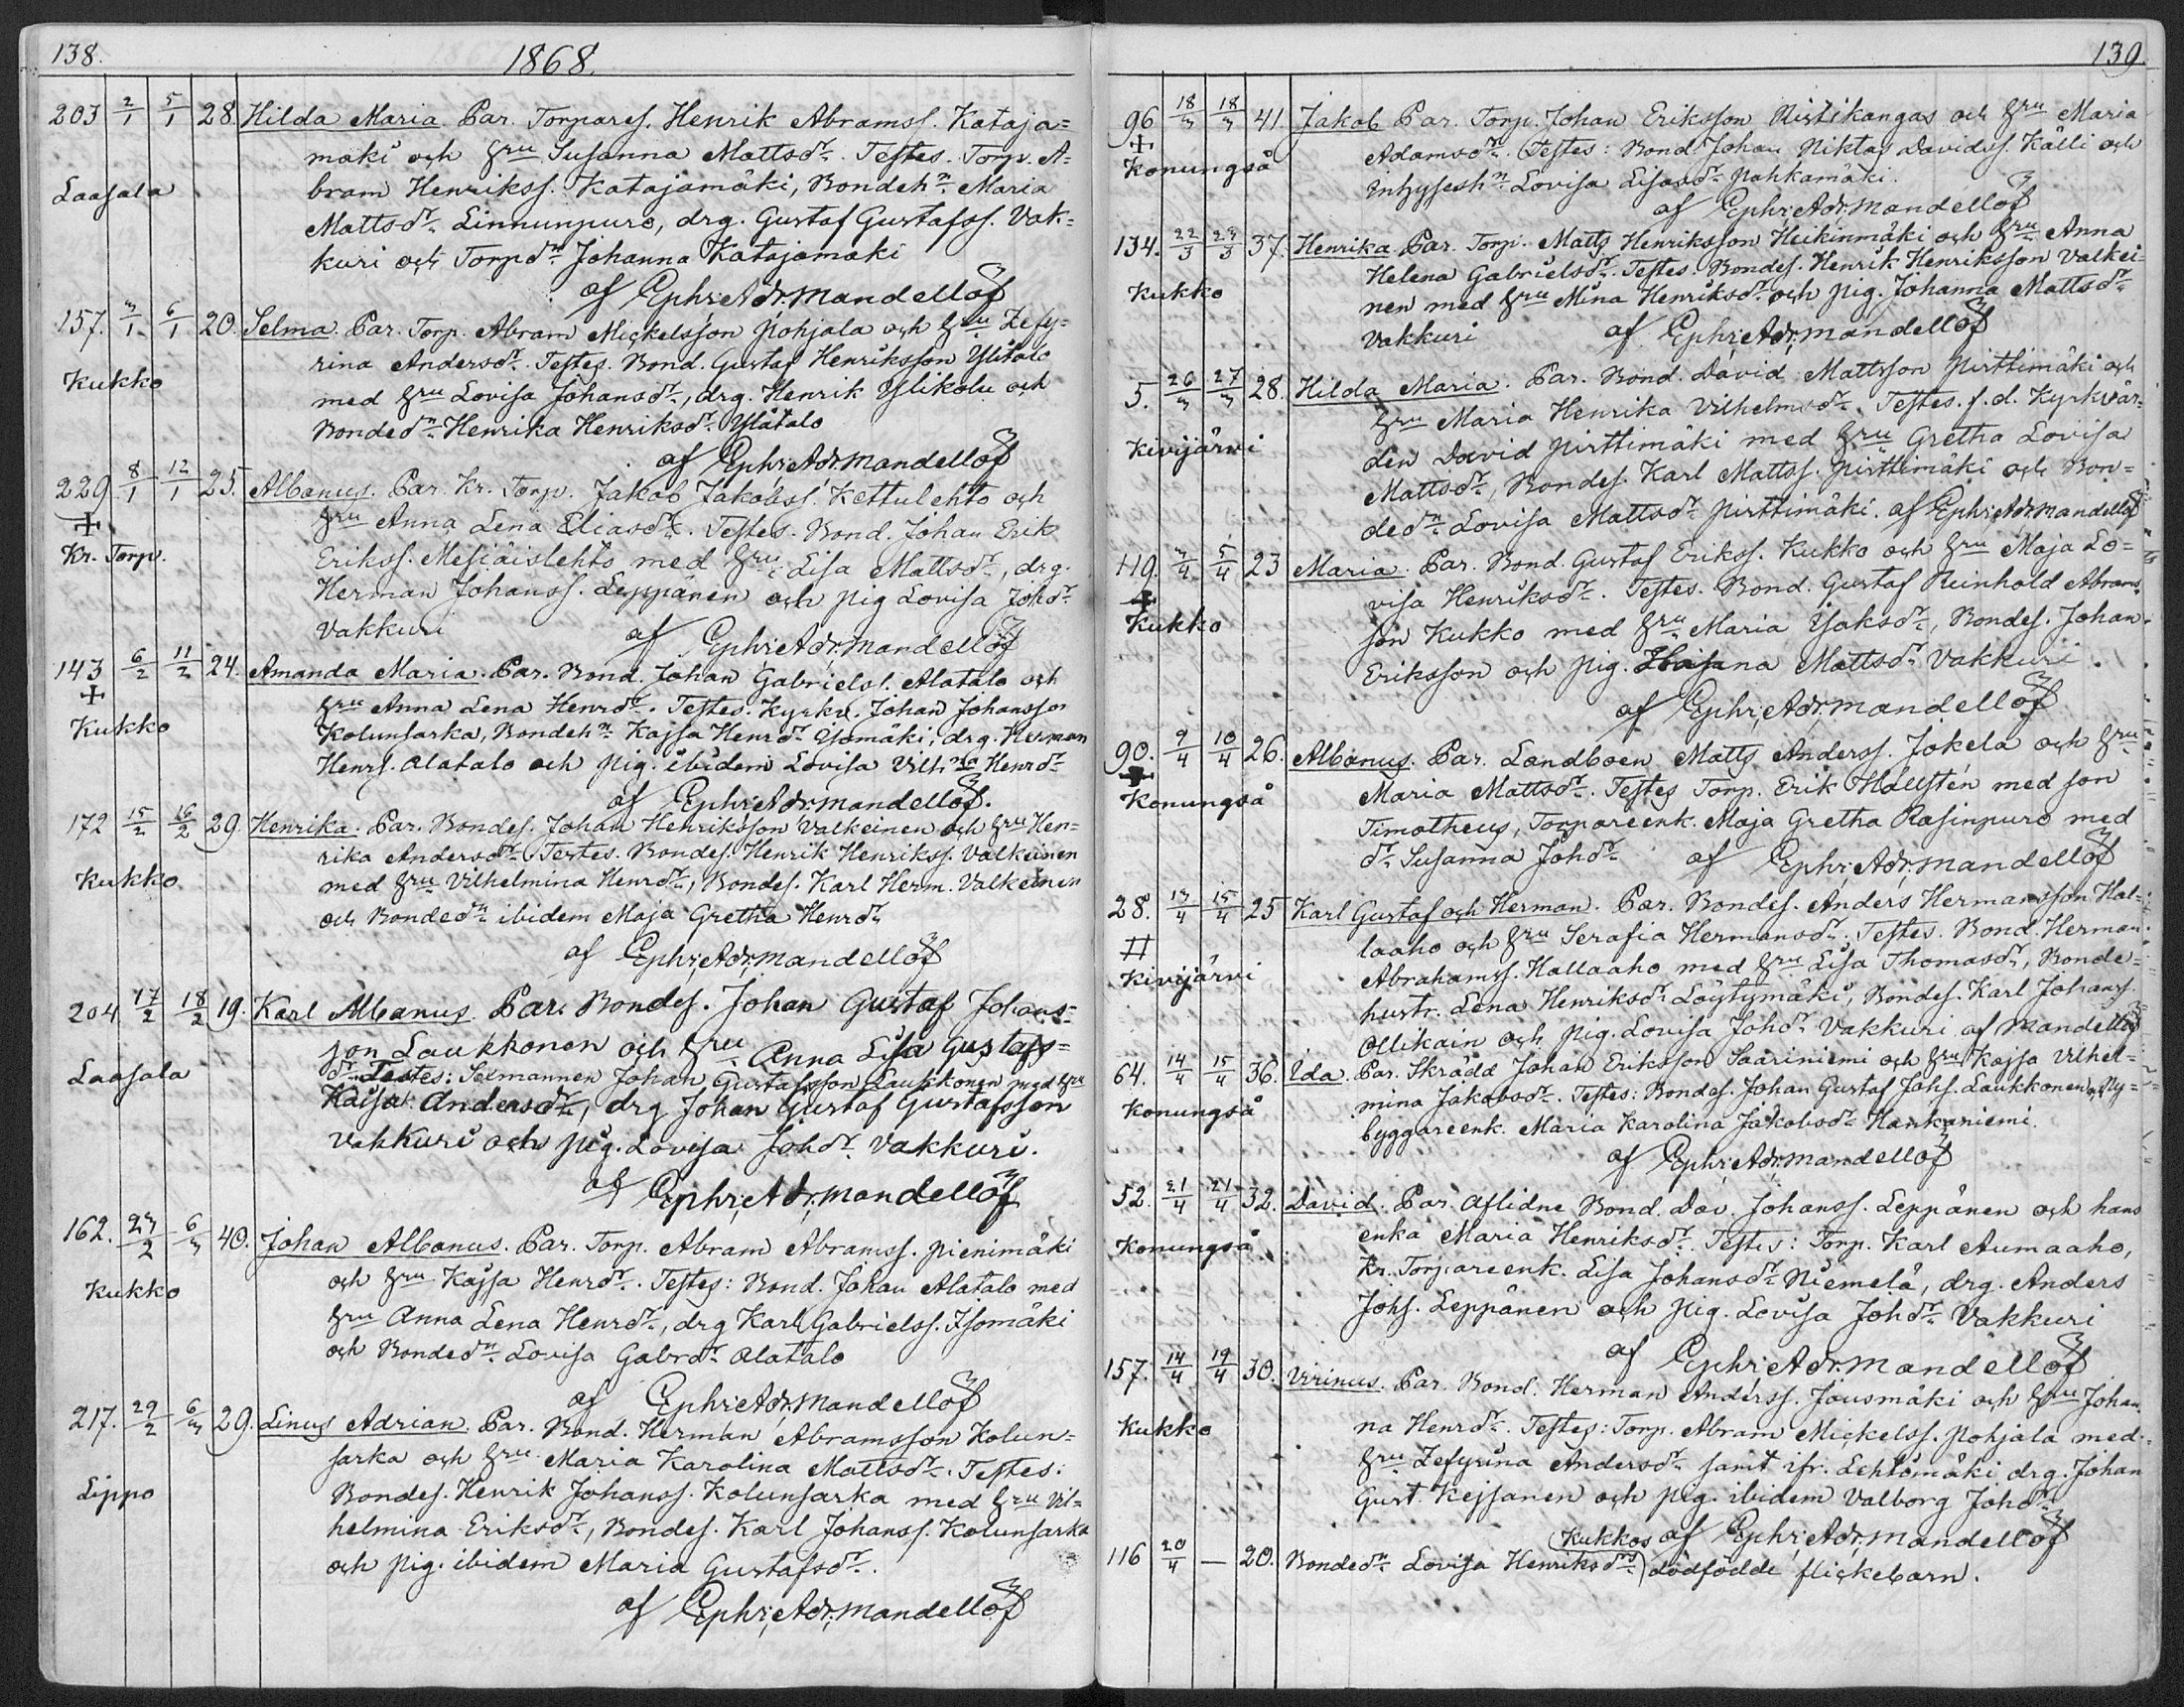 138.
1868.
203 2/1 5/1 28. Hilda Maria Par. Torpares. Henrik Abramss. Kataja=
mäki och hru Susanna Mattsdr. Testes. Torp. A=
Laasala bram Henrikss. Katajamäki, Bondehn Maria
Mattsdr Linnunpuro, drg. Gustaf Gustafss. Vak=
kuri och Torpdn Johanna Katajamäki
af Ephr. Adr. Mandellöf
157. 3/1 6/1 20. Selma. Par. Torp. Abram Mickelsson Pohjala och hru Zefy=
rina Andersdr. Testes. Bond. Gustaf Henriksson Ylitalo
Kukko med hru Lovisa Johansdr, drg. Henrik Ylikolu och
Bondedn Henrika Henriksdr Ylitalo
af Ephr. Adr. Mandellöf
229. 8/1 12/1 25. Albanus. Par. Kr. Torp. Jakob Jakobss. Kettulehto och
+ hru Anna Lena Eliasdr. Testes. Bond. Johan Erik
Kr. Torp. Erikss. Mesiäislehto med hru Lisa Mattsdr, drg.
Herman Johanss. Leppänen och pig Lovisa Johdr
Vakkuri af Ephr. Adr. Mandellöf
143 6/2 11/2 24. Amanda Maria. Par. Bond. Johan Gabrielss. Alatalo och
+ hru Anna Lena Henrdr. Testes. Kyrkv. Johan Johansson
Kukko Kolunsarka, Bondehn Kajsa Henrdr Isomäki, drg. Herman
Henrs. Alatalo och pig. ibidem Lovisa Vilhma Henrdr
af Ephr. Adr. Mandellöf.
172 15/2 16/2 29. Henrika. Par. Bondes. Johan Henriksson Valkeinen och hru Hen=
rika Andersdr. Testes. Bondes. Henrik Henrikss. Valkeinen
Kukko med hru Vilhelmina Henrdr, Bondes. Karl Herm. Valkeinen
och Bondedn ibidem Maja Gretha Henrdr
af Ephr. Adr. Mandellöf
204 17/2 18/2 19. Karl Albanus Par. Bondes. Johan Gustaf Johans=
son Laukkonen och hru Anna Lisa Gustafs=
Laasala dr Testes: Sexmannen Johan Gustafsson Laukkonen med hru
Kaisa Andersdr, drg Johan Gustaf Gustafsson
Vakkuri och pig. Lovisa Johdr Vakkuri.
af Ephr. Adr. Mandellöf
162. 23/2 6/3 40. Johan Albanus. Par. Torp. Abram Abramss. Pienimäki
och hru Kajsa Henrdr. Testes: Bond. Johan Alatalo med
Kukko hru Anna Lena Henrdr, drg Karl Gabrielss. Isomäki
och Bondedn Lovisa Gabrdr Alatalo
af Ephr. Adr. Mandellöf
217. 29/2 6/3 29. Linus Adrian. Par. Bond. Herman Abramsson Kolun=
sarka och hru Maria Karolina Mattsdr. Testes:
Lippo Bondes. Henrik Johanss. Kolunsarka med hru Vil=
helmina Eriksdr, Bondes. Karl Johanss. Kolunsarka
och pig. ibidem Maria Gustafsdr.
af Ephr. Adr. Mandellöf
139.
96 18/3 18/3 41. Jakob Par. Torp. Johan Eriksson Ristikangas och hru Maria
+ Adamsdr. Testes: Bond. Johan Niktas Davidss. Källi och
Konungså Inhyseshn Lovisa Lisasdr Pahkamäki.
af Ephr. Adr. Mandellöf
134. 22/3 23/3 37. Henrika Par. Torp. Matts Henriksson Heikinmäki och hru Anna
Helena Gabrielsdr. Testes. Bondes. Henrik Henriksson Valkei=
Kukko nen med hru Mina Henriksdr och pig. Johanna Mattsdr
Vakkuri af Ephr. Adr. Mandellöf
5. 26/3 27/3 28. Hilda Maria. Par. Bond. David Mattsson Pirttimäki och
hru Maria Henrika Vilhelmsdr. Testes. f.d. Kyrkvär=
Kivijärvi den David Pirttimäki med hru Gretha Lovisa
Mattsdr, Bondes. Karl Mattss. Pirttimäki och Bon=
dedn Lovisa Mattsdr Pirttimäki. af Ephr. Adr. Mandellöf
119. 3/4 5/4 23 Maria. Par. Bond. Gustaf Erikss. Kukko och hru Maja Lo=
+ visa Henriksdr. Testes. Bond. Gustaf Reinhold Abrams=
Kukko son Kukko med hru Maria Isaksdr, Bondes. Johan
Eriksson och pig. Mattsdr Vakkuri.
af Ephr. Adr. Mandellöf
90. 9/4 10/4 26. Albanus. Par. Landboen Matts Anderss. Jokela och hru
+ Maria Mattsdr. Testes Torp. Erik Hallstén med son
Konungså Timotheus, Torpareenk. Maja Gretha Rasinpuro med
dr Susanna Johdr af Ephr. Adr. Mandellöf
28. 13/4 15/4 25 Karl Gustaf och Herman. Par. Bondes. Anders Hermansson Hal=
++ laaho och hru Serafia Hermansdr. Testes. Bond. Herman
Kivijärvi Abrahamss. Hallaaho med hru Lisa Thomasdr, Bonde=
hustr. Lena Henriksdr Löytymäki, Bondes. Karl Johanss.
Ollikain och pig. Lovisa Johdr Vakkuri af Mandellöf
64. 14/4 15/4 36. Ida. Par. Skrädd Johan Eriksson Saariniemi och hru Kajsa Vilhel=
Konungså mina Jakobsdr. Testes: Bondes. Johan Gustaf Johs. Laukkonen och Ny=
byggareenk. Maria Karolina Jakobsdr Hankaniemi.
af Ephr. Adr. Mandellöf
52. 21/4 21/4 32. David. Par. Aflidne Bond. Dav. Johanss. Leppänen och hans
Konungså enka Maria Henriksdr. Testes: Torp. Karl Aumaaho,
Kr. Torpareenk. Lisa Johansdr Niemelä, drg. Anders
Johs. Leppänen och pig. Lovisa Johdr Vakkuri
af Ephr. Adr. Mandellöf
157. 14/4 19/4 30. Virinus. Par. Bond. Herman Anderss. Jousmäki och hru Johan=
Kukko na Henrdr. Testes: Torp. Abram Mickelss. Pohjala med
hru Zefyrina Andersdr samt ifr. Lehtomäki drg. Johan
Gust. Kejsanen och pig. ibidem Valborg Johdr
af Ephr. Adr. Mandellöf
116 20/4 — 20. Bondedn Lovisa Henriksdrs Kukkos dödfödde flickebarn.